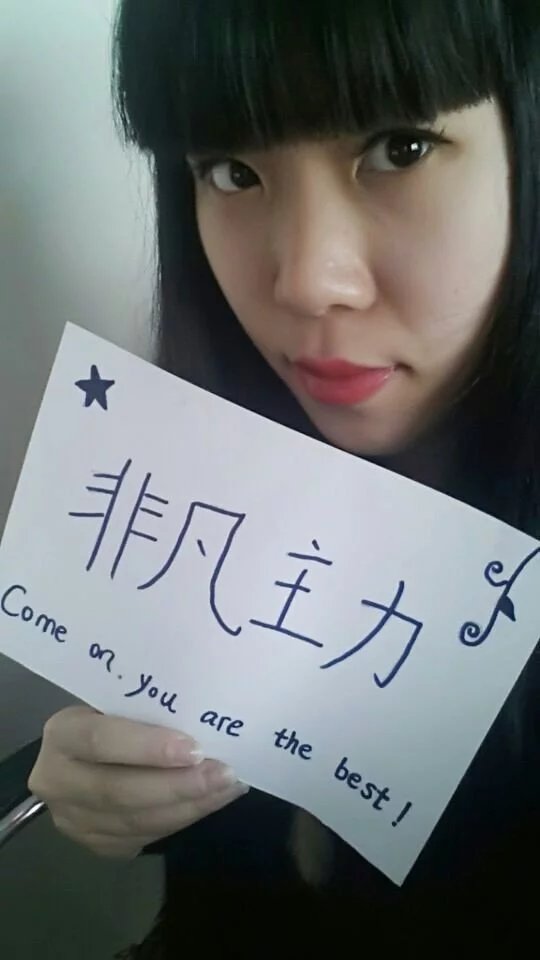 非凡主力
Come on. you are the best!